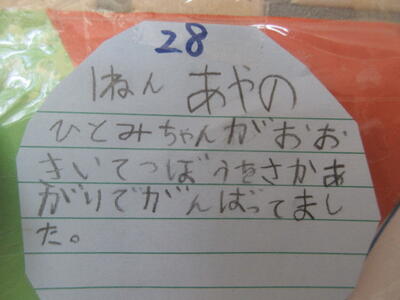 28
1ねん あやの
ひとみちゃんがおお
きいてつぼうをさかあ
がりでがんばってまし
た。